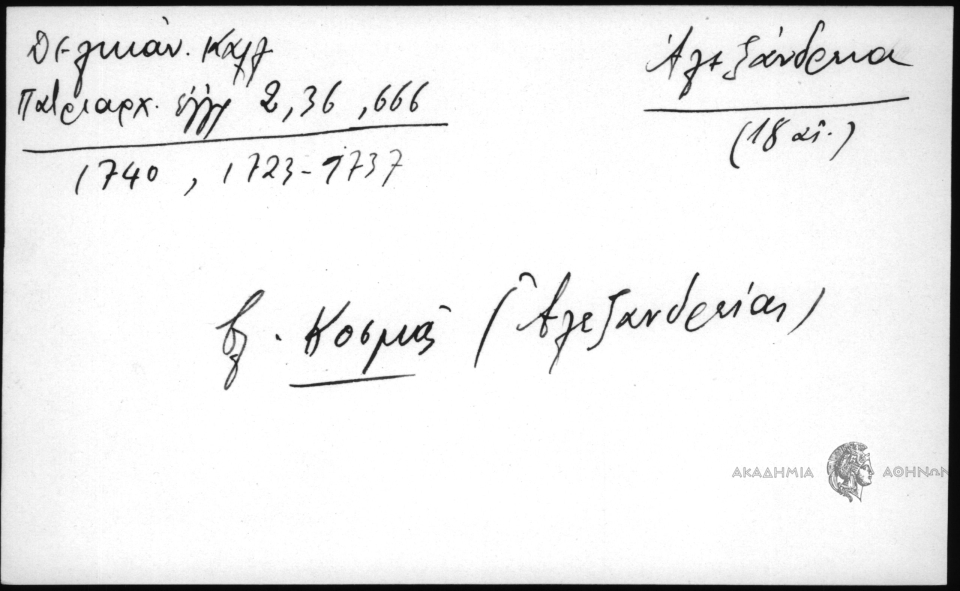 Δελικάν. Καλλ
Πατριαρχ. ἐγγρ 2,36, 666
1740, 1723-1737
Ἀλεξάνδρεια
(18 αἰ.)
βλ. Κοσμᾶς (Ἀλεξανδρείας)
ΑΚΑΔΗΜΙΑ ΑΘΗΝΩΝ